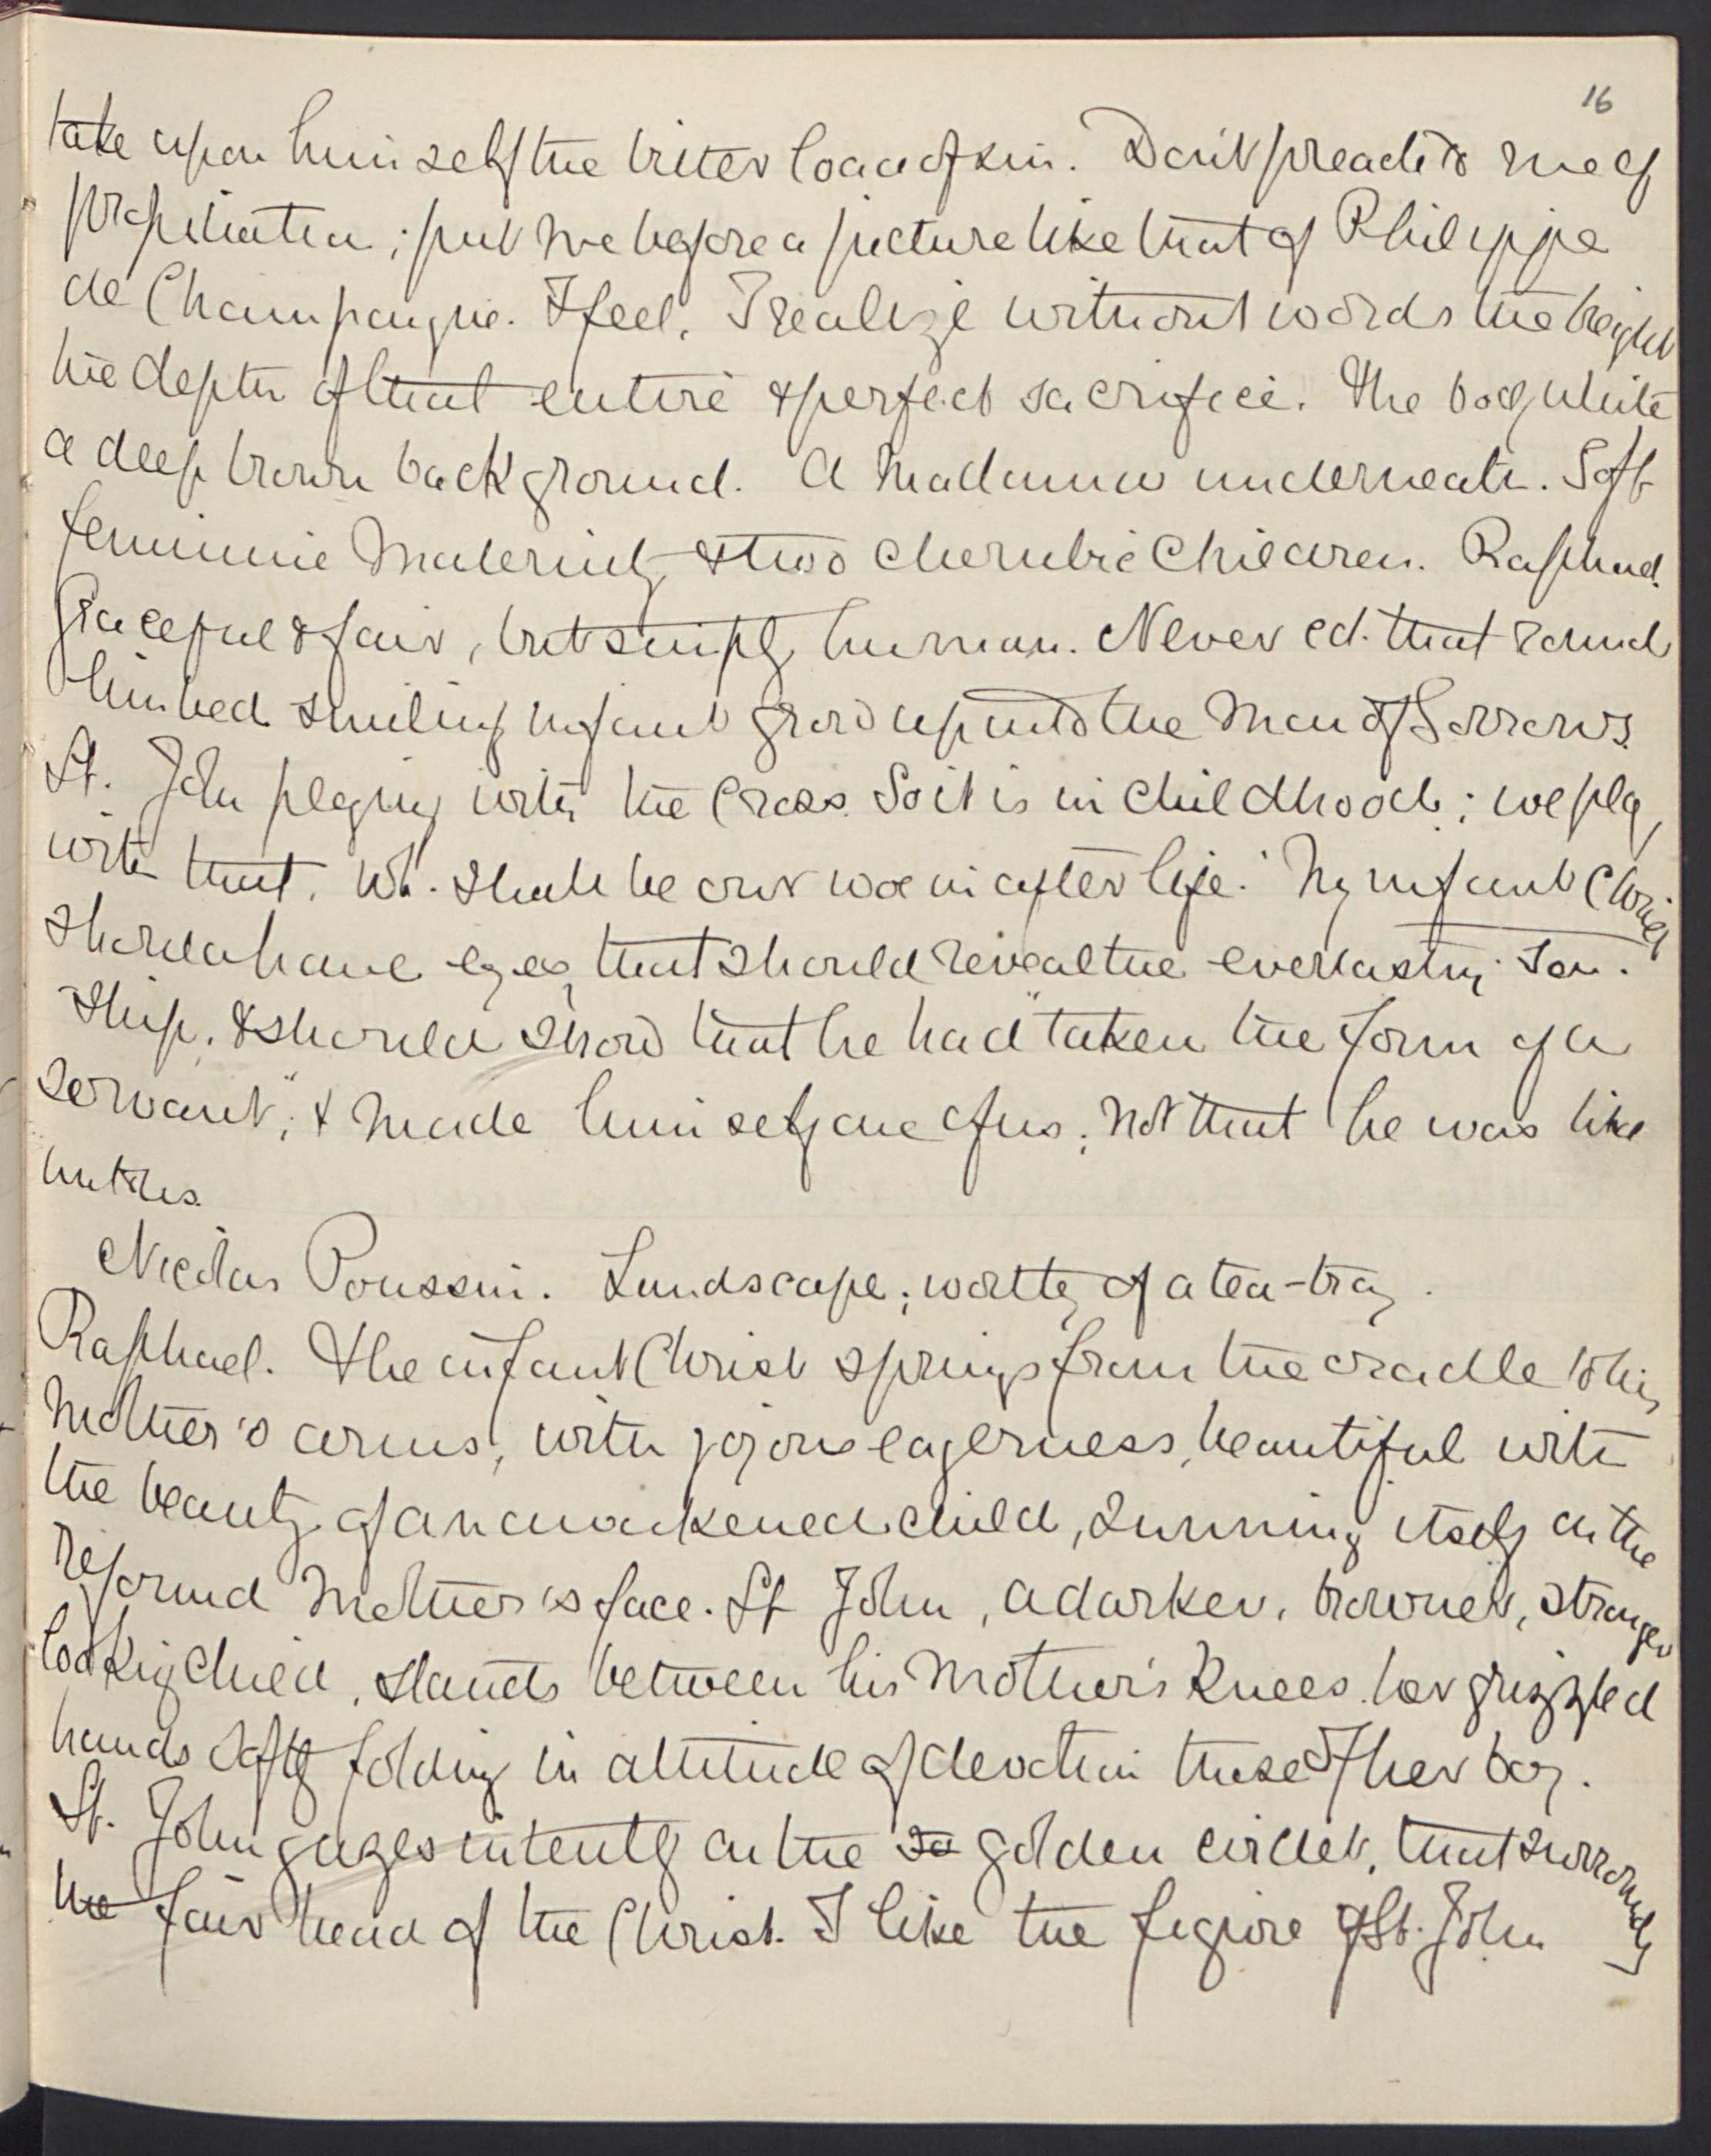 16
take upon himself the bitter load of sin. Don't preach to me of
propitiation; put me before a picture like that of Philippe
de Champaigne. I feel, I realize without words the height
the depth of that entire & perfect sacrifice. The body white
a deep brown background. A Madonna underneath. Soft
feminine Maternity, & two cherubic children. Raphael.
Graceful & fair, but simply human. Never cd. that round
limbed smiling infant grow up into the Man of Sorrows.
St. John playing with the Cross. So it is in childhood; we play
with that, wh. shall be our woe in after life. My infant Christ
should have eyes, that should reveal the everlasting Son-
ship, & should show that he had "taken the form of a
servant"; & made himself one of us; not that he was like
unto us.
Nicolas Poussin. Landscape; worthy of a tea-tray.
Raphael. The infant Christ springs from the cradle to his
Mother's arms, with joyous eagerness, beautiful with
the beauty of an awakened child, sunning itself in the
refound Mother's face. St John, a darker, browner, stranger
looking child, stands between his Mother's Knees. her grizzled
hands softly folding in attitude of devotion those of her boy.
St. John gazes intently on the so golden circlet, that surrounds
the fair head of the Christ. I like the figure of St. John